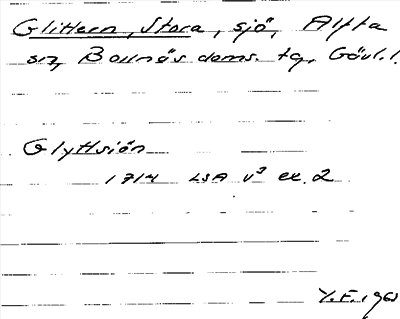 Glitteren, Stora, sjö, Alfta
sn, Bollnäs doms. tg, Gävl. l.
Glyttsiön
1714 LSA V3 ex. 2
Y.F. 1960